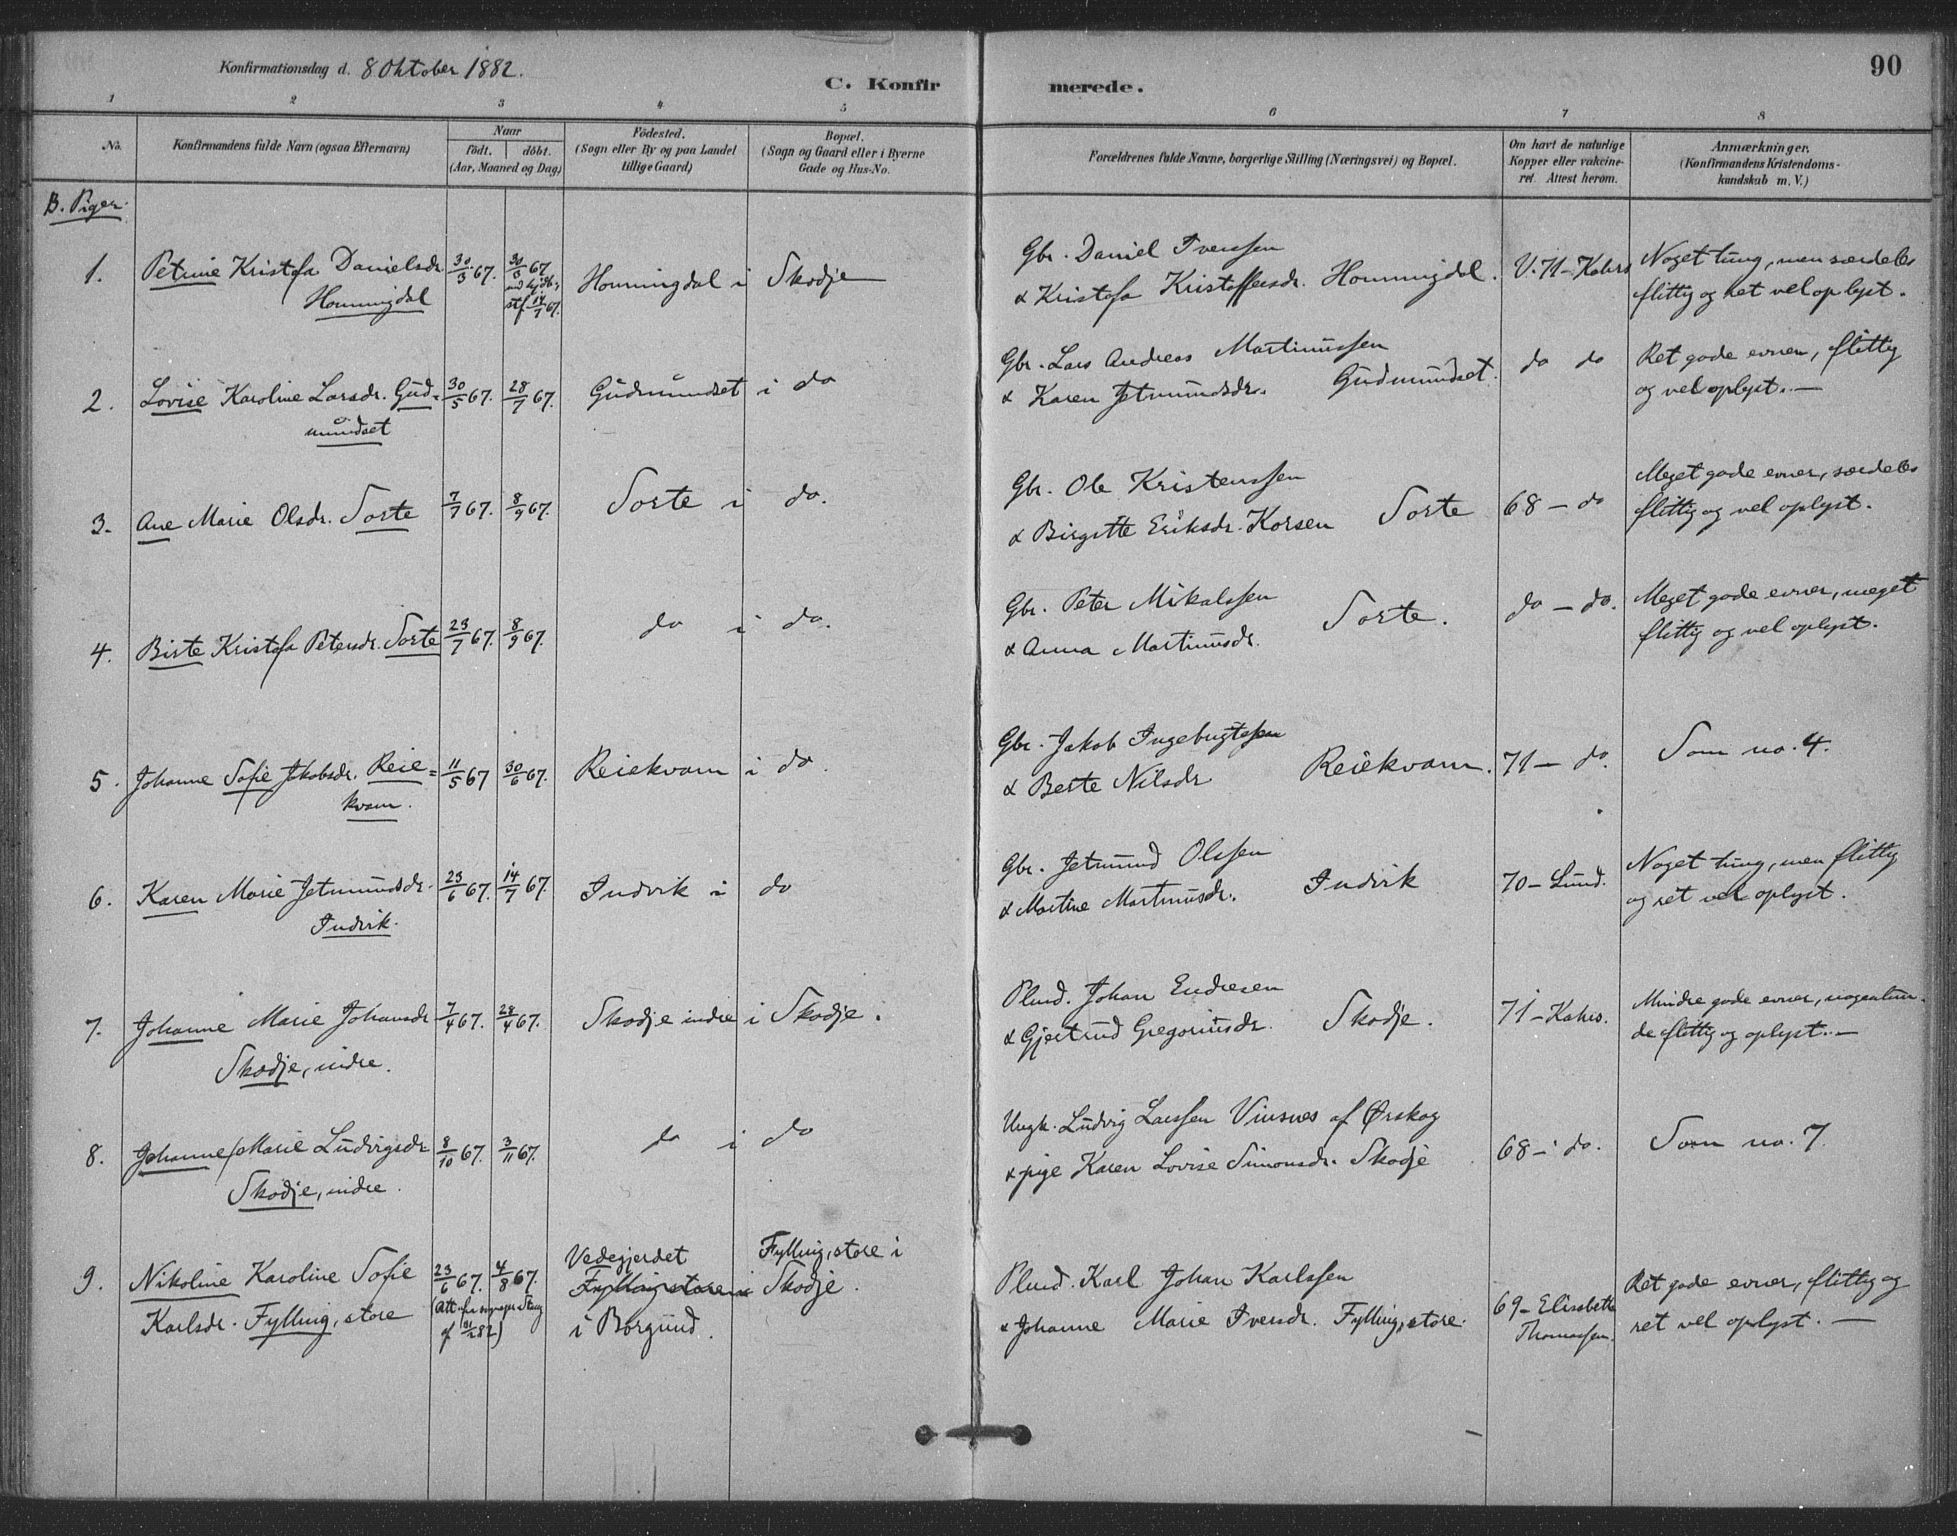 90
Konfirmationsdag d. 8 Oktober 1882.
C. Konfirmerede.
1 2 3 4 5 6 7 8
No.
Konfirmandens fulde Navn (ogsaa Efternavn)
Naar
födt. döbt.
(Aar, Maaned og Dag)
Födested.
(Sogn eller By og paa Landet
tillige Gaard)
Bopæl.
(Sogn og Gaard eller i Byerne
Gade og Hus-No.
Forældrenes fulde Navne, borgerlige Stilling (Næringsvei) og Bopæl.
Om havt de naturlige
Kopper eller vakcine-
ret. Attest herom.
Anmærkninger.
(Konfirmandens Kristendoms-
kundskab m. V.)
B. Piger.
1. Petrine Kristofa Danielsdr. 30/3 67. 30/3 67 Honningdal i Skodje
Honningdal
stf 14/7 67.
Gbr. Daniel Iverssen
& Kristofa Kristoffersdr. Honningdal. V. 71 - Kahrs
Noget tung, men særdeles
flittig og ret vel oplyst.
2. Lovise Karoline Larsdr. Gud= 30/5 67. 28/7 67. Gudmundset i do
mundset
Gbr. Lars Andreas Martinussen
& Karen Jetmundsdr. Gudmundset. do do
Ret gode evner, flittig
og vel oplyst. —
3. Ane Marie Olsdr. Sorte 7/7 67. 8/9 67. Sorte i do.
Gbr. Ole Kristenssen
& Birgitte Eriksdr. Korsen Sorte 68 - do
Meget gode evner, særdeles
flittig og vel oplyst.
4. Birte Kristofa Petersdr. Sorte 23/7 67. 8/9 67. do i do.
Gbr. Peter Mikalssen
& Anna Martinusdr. Sorte. do - do.
Meget gode evner, meget
flittig og vel oplyst.
5. Johanne Sofie Jakobsdr. Reie= 11/5 67 30/6 67. Reiekvam i do
kvam.
Gbr. Jakob Ingebrigtssen
& Berte Nilsdr Reiekvam. 71 - do.
Som no. 4.
6. Karen Marie Jetmundsdr. 23/6 67. 14/7 67. Indvik i do
Indvik.
Gbr. Jetmund Olssen
& Martine Martinusdr. Indvik 70 - Lund.
Noget tung, men flittig
og ret vel oplyst.
7. Johanne Marie Johansdr 7/4 67. 28/4 67. Skodje indre i Skodje.
Skodje, indre.
Plmd. Johan Endresen
& Gjertrud Gregoriusdr. Skodje. 71 - Kahrs.
Mindre gode evner, nogenlun-
de flittig og oplyst. —
8. Johanne Marie Ludvigsdr 8/10 67. 3/11 67. do i do
Skodje, indre.
Ungk. Ludvig Larssen Vinsnes af Ørskog
& pige Karen Lovise Simonsdr. Skodje 68 - do.
Som no. 7
9. Nikoline Karoline Sofie 23/6 67. 4/8 67.
Karlsdr. Fylling, store
Vedegjerdet
Fylling store
i Borgund.
Fylling, store i
Skodje.
Plmd. Karl Johan Karlssen
& Johanne Marie Iversdr. Fylling, store. 69 - Elisabeth
Thomassen.
Ret gode evner, flittig og
ret vel oplyst. —